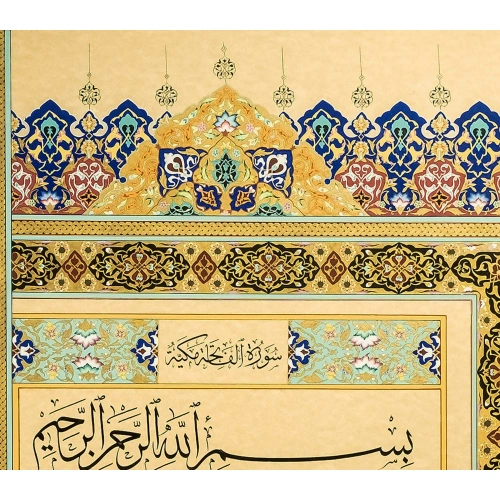 سورة الفاتحة مكية
بسم ٱلله ٱلرحمن ٱلرحيم